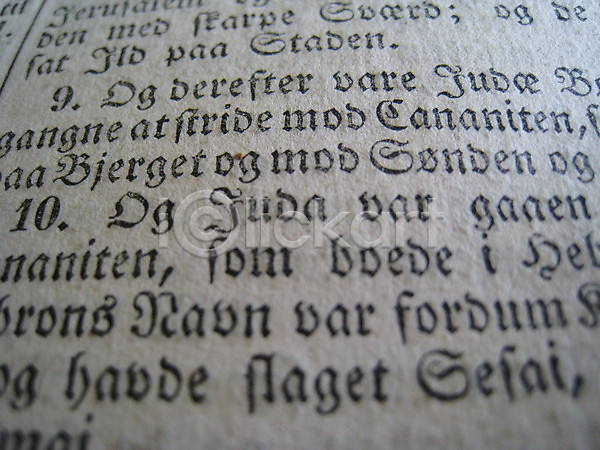 Jerusalem og
den med skarpe Sværd; og de
sat Ild paa Staden.
9. Og derefter vare Judæ
gangne at stride mod Cananiten,
paa Bjerget og mod Sønden og
10. Og Juda var gaaen
naniten, som boede i Heb
brons Navn var fordum K
og havde slaget Sesai,
mai
iclickart